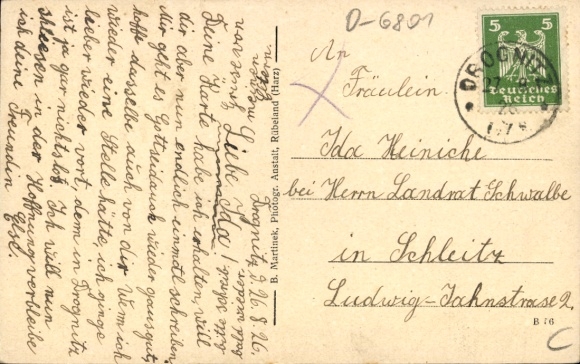 D-6801
5 5
Deutsches
Reich
DROGNITZ
An
Fräulein
Ida Heiniche
bei Herrn Landrat Schwalbe
in Schleitz
Ludwig-Jahnstrase 2.
B 76
C
B. Martinek, Photogr. Anstalt, Rübeland (Harz)
Drognitz, d. 26. 8. 26.
Liebe Ida!
Deine Karte habe ich erhalten, will
dir aber nun endlich einmal schreiben
Mir geht es Gottseidank wieder ganz gut,
hoffe dasselbe auch von dir. Wen ich
wieder eine Stelle hätte ich ginge
lieber wieder vort, denn in Drognitz
ist ja gar nichts los. Ich will nun
schliesen in der Hoffnung verbleibe
ich deine Freundin Elsl.
bald wieder